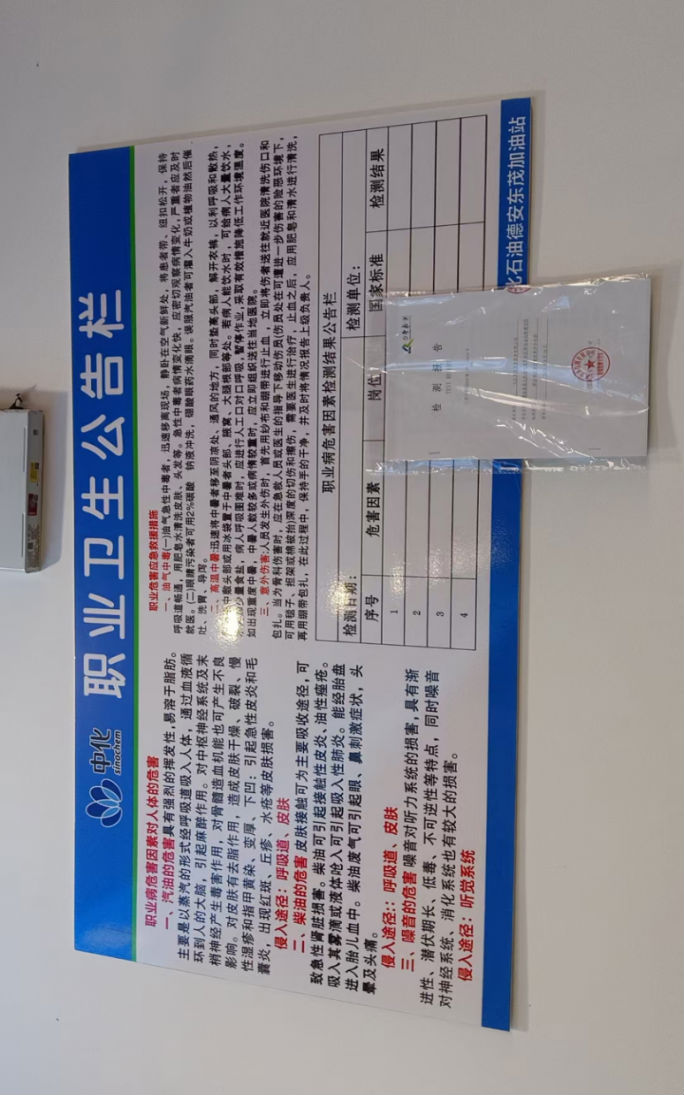 中化
sinochem
职业卫生公告栏
职业病危害因素对人体的危害
一、汽油的危害 具有强烈的挥发性,易溶于脂肪。
主要是以蒸汽的形式经呼吸道吸入人体，通过血液循
环到人的大脑，引起麻醉作用。对中枢神经系统及末
梢神经产生毒害作用，对骨髓造血机能也可产生不良
影响。对皮肤有去脂作用，造成皮肤干燥、破裂、慢
性湿疹和指甲黄染、变厚、下凹；引起急性皮炎和毛
囊炎，出现红斑、丘疹、水疮等皮肤损害。
侵入途径：呼吸道、皮肤
二、柴油的危害 皮肤接触可为主要吸收途径，可
致急性肾脏损害。柴油可引起接触性皮炎、油性痤疮。
吸入其雾滴或液体呛入可引起吸入性肺炎。能经胎盘
进入胎儿血中。柴油废气可引起眼、鼻刺激症状，头
晕及头痛。
侵入途径：：呼吸道、皮肤
三、噪音的危害 噪音对听力系统的损害,具有渐
进性、潜伏期长、低毒、不可逆性等特点，同时噪音
对神经系统、消化系统也有较大的损害。
侵入途径：听觉系统
职业危害应急救援措施
一、油气中毒(一)油气急性中毒者，迅速移离现场，静卧在空气新鲜处，将患者带、纽扣松开，保持
呼吸道畅通，用肥皂水清洗皮肤、头发等。急性中毒者病情变化快，应密切观察病情变化,严重者应及时
就医。(二)眼睛污染者可用2%碳酸 钠液冲洗，硼酸眼药水滴眼。误服汽油者可灌入牛奶或植物油然后催
吐、洗胃、导泻。
二、高温中暑:迅速将中暑者移至阴凉处、通风的地方，同时垫高头部，解开衣裤，以利呼吸和散热，
敷头部或用冰袋置于中暑者头部、腋窝、大腿根部等处。若病人能饮水时，可给病人大量饮水，
少量食盐，病人呼吸困难时，应进行人工口对口呼吸,暂停作业,采取有效措施降低工作环境温度。
如出现重度中暑，中暑人数较多或病情较重时，应立即组织送往当地医院。
三、意外伤害:人员发生外伤时，首先用纱布和绷带进行止血，立即将伤者送往就近医院清洗伤口和
包扎。当为骨科伤害时，应在急救人员或医生的指导下移动伤员(伤员处在可遭进一步伤害的险恶环境下，
可用毯子、担架或棉被抬)深度的切伤和擦伤，需要医生进行治疗，止血之后，应用肥皂和清水进行清洗，
再用绷带包扎，在此过程中，保持手的干净，并及时将情况报告上级负责人。
职业病危害因素检测结果公告栏
检测日期： 检测单位：
序号 危害因素 岗位 国家标准 检测结果
1
2
3
4
检 测 报 告
化石油德安东茂加油站